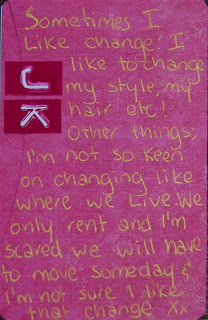 Sometimes I
Like change! I
like to change
my style, my
hair etc!
Other things;
I'm not so keen
on changing like
where we Live. We
only rent and I'm
scared we will have
to move someday &
I'm not sure I like
that change xx
J
K